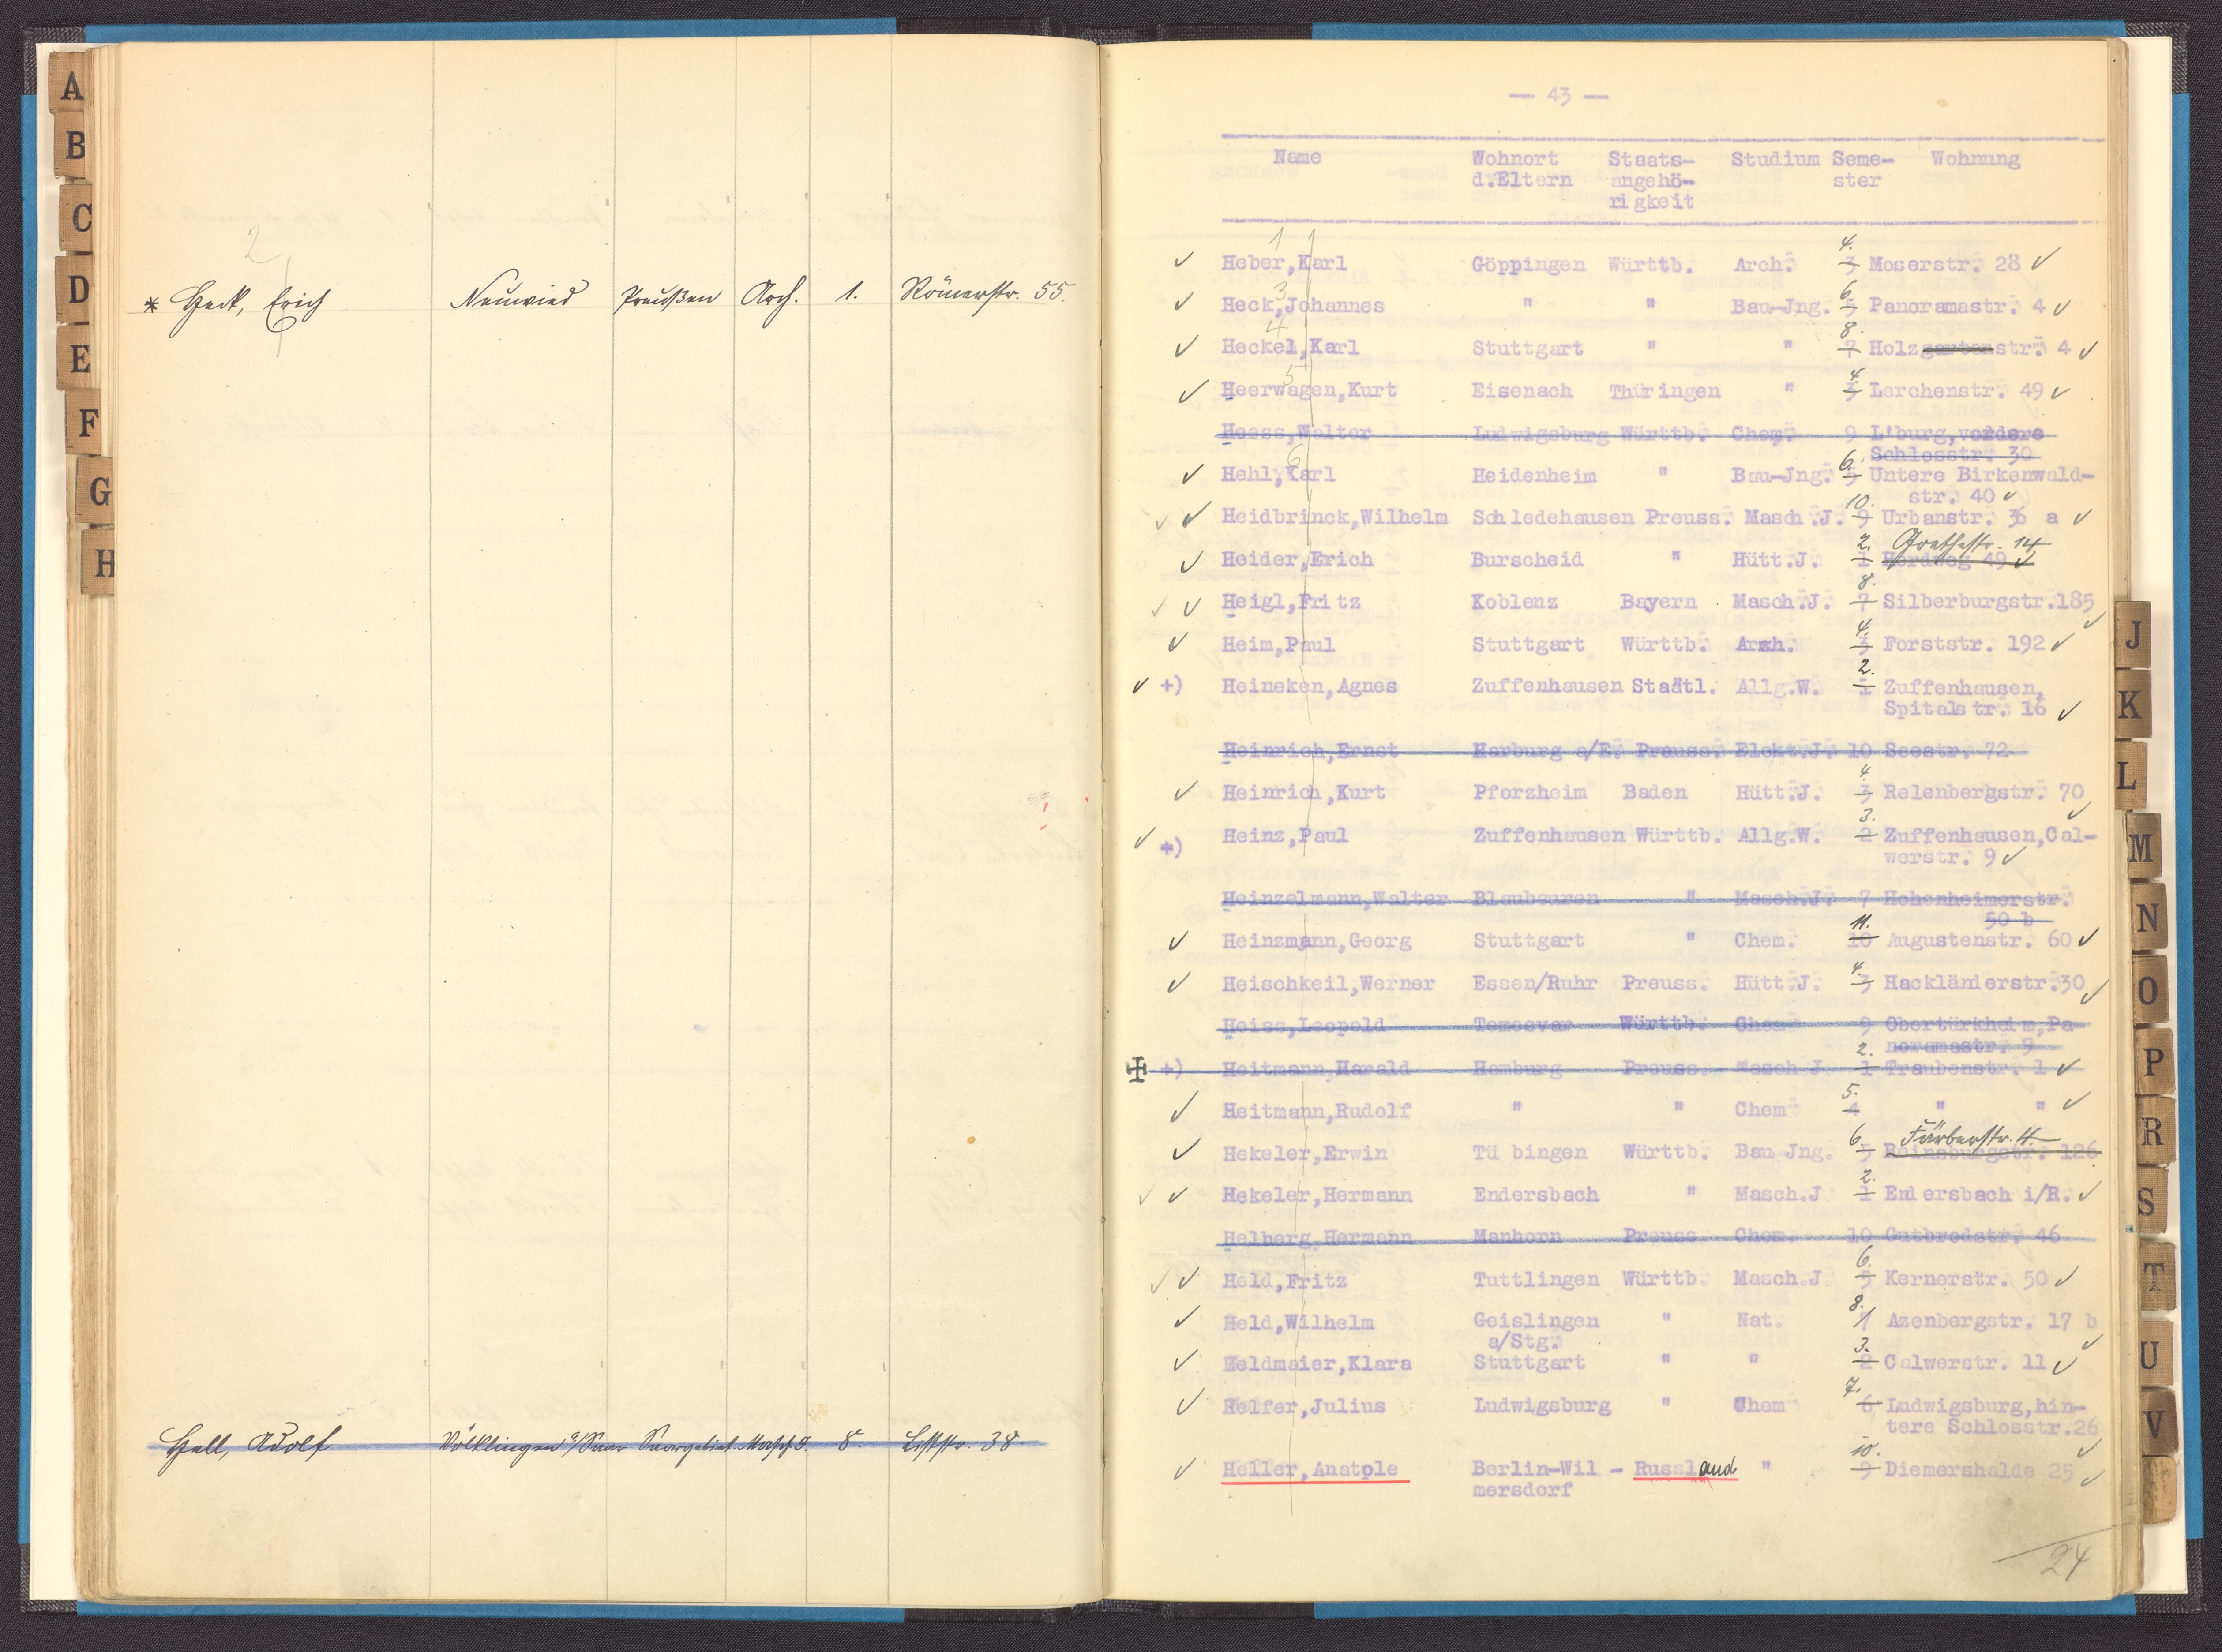 A
B
C
D
E
F
G
H
2
* Heck, Erich Neuwied Preußen Arch. 1. Römerstr. 55.
Hell, Adolf Völklingen a/Saar Saargebiet Masch J. 8. Liststr. 38.
— 43 —
Name Wohnort Staats- Studium Seme- Wohnung
d.Eltern angehö- ster
rigkeit
1
✓ Heber,Karl Göppingen Württb. Arch. 3 4. Moserstr. 28 ✓
3
✓ Heck,Johannes " " Bau-Jng. 5 6. Panoramastr. 4 ✓
4
✓ Heckel,Karl Stuttgart " " 7 8. Holzgartenstr. 4 ✓
5
✓ Heerwagen,Kurt Eisenach Thüringen " 3 4. Lerchenstr. 49 ✓
Heess,Walter Ludwigsburg Württb. Chem. 9 L'burg,vordere
Schlosstr. 30
6
✓ Hehl,Karl Heidenheim " Bau-Jng. 5 6. Untere Birkenwald-
str. 40 ✓
✓ ✓ Heidbrinck,Wilhelm Schledehausen Preuss. Masch.J. 9 10. Urbanstr. 36 a ✓
Goethestr. 14
✓ Heider,Erich Burscheid " Hütt.J. 1 2. Herdweg 49 ✓
✓ ✓ Heigl,Fritz Koblenz Bayern Masch.J. 7 8. Silberburgstr.185 ✓
✓ Heim,Paul Stuttgart Württb. Arch. 3 4. Forststr. 192 ✓
✓ +) Heineken,Agnes Zuffenhausen Staatl. Allg.W. 1 2. Zuffenhausen,
Spitalstr. 16 ✓
Heinrich,Ernst Harburg a/E. Preuss. Elekt.J. 10 Seestr. 72
✓ Heinrich,Kurt Pforzheim Baden Hütt.J. 3 4. Relenbergstr. 70 ✓
✓ +) Heinz,Paul Zuffenhausen Württb. Allg.W. 2 3. Zuffenhausen,Cal-
werstr. 9 ✓
Heinzelmann,Walter Blaubeuren " Masch.J. 7 Hohenheimerstr.
50 b
✓ Heinzmann,Georg Stuttgart " Chem. 10 11. Augustenstr. 60 ✓
✓ Heischkeil,Werner Essen/Ruhr Preuss. Hütt.J. 3 4. Hackländerstr.30 ✓
Heiss,Leopold Temesvar Württb. Chem. 9 Obertürkheim,Pa-
noramastr. 9
✠ +) Heitmann,Harald Hamburg Preuss. Masch.J. 1 2. Traubenstr. 1 ✓
✓ Heitmann,Rudolf " " Chem 4 5. " " ✓
Färberstr. 4.
✓ Hekeler,Erwin Tübingen Württb. Bau Jng. 5 6. Reinsburgstr. 126
✓ ✓ Hekeler,Hermann Endersbach " Masch.J 1 2. Endersbach i/R. ✓
Helberg,Hermann Manhorn Preuss Chem. 10 Gutbrodstr. 46
✓ ✓ Held,Fritz Tuttlingen Württb. Masch.J 5 6. Kernerstr. 50 ✓
✓ Held,Wilhelm Geislingen " Nat. 7 8. Azenbergstr. 17 b ✓
a/Stg.
✓ Heldmaier,Klara Stuttgart " " 2 3. Calwerstr. 11 ✓
✓ Helfer,Julius Ludwigsburg " Chem 6 7. Ludwigsburg,hin-
tere Schlosstr.26 ✓
✓ Heller,Anatole Berlin-Wil - Russland " 9 10. Diemershalde 25 ✓
mersdorf
24
J
K
L
M
N
O
P
R
S
T
U
V